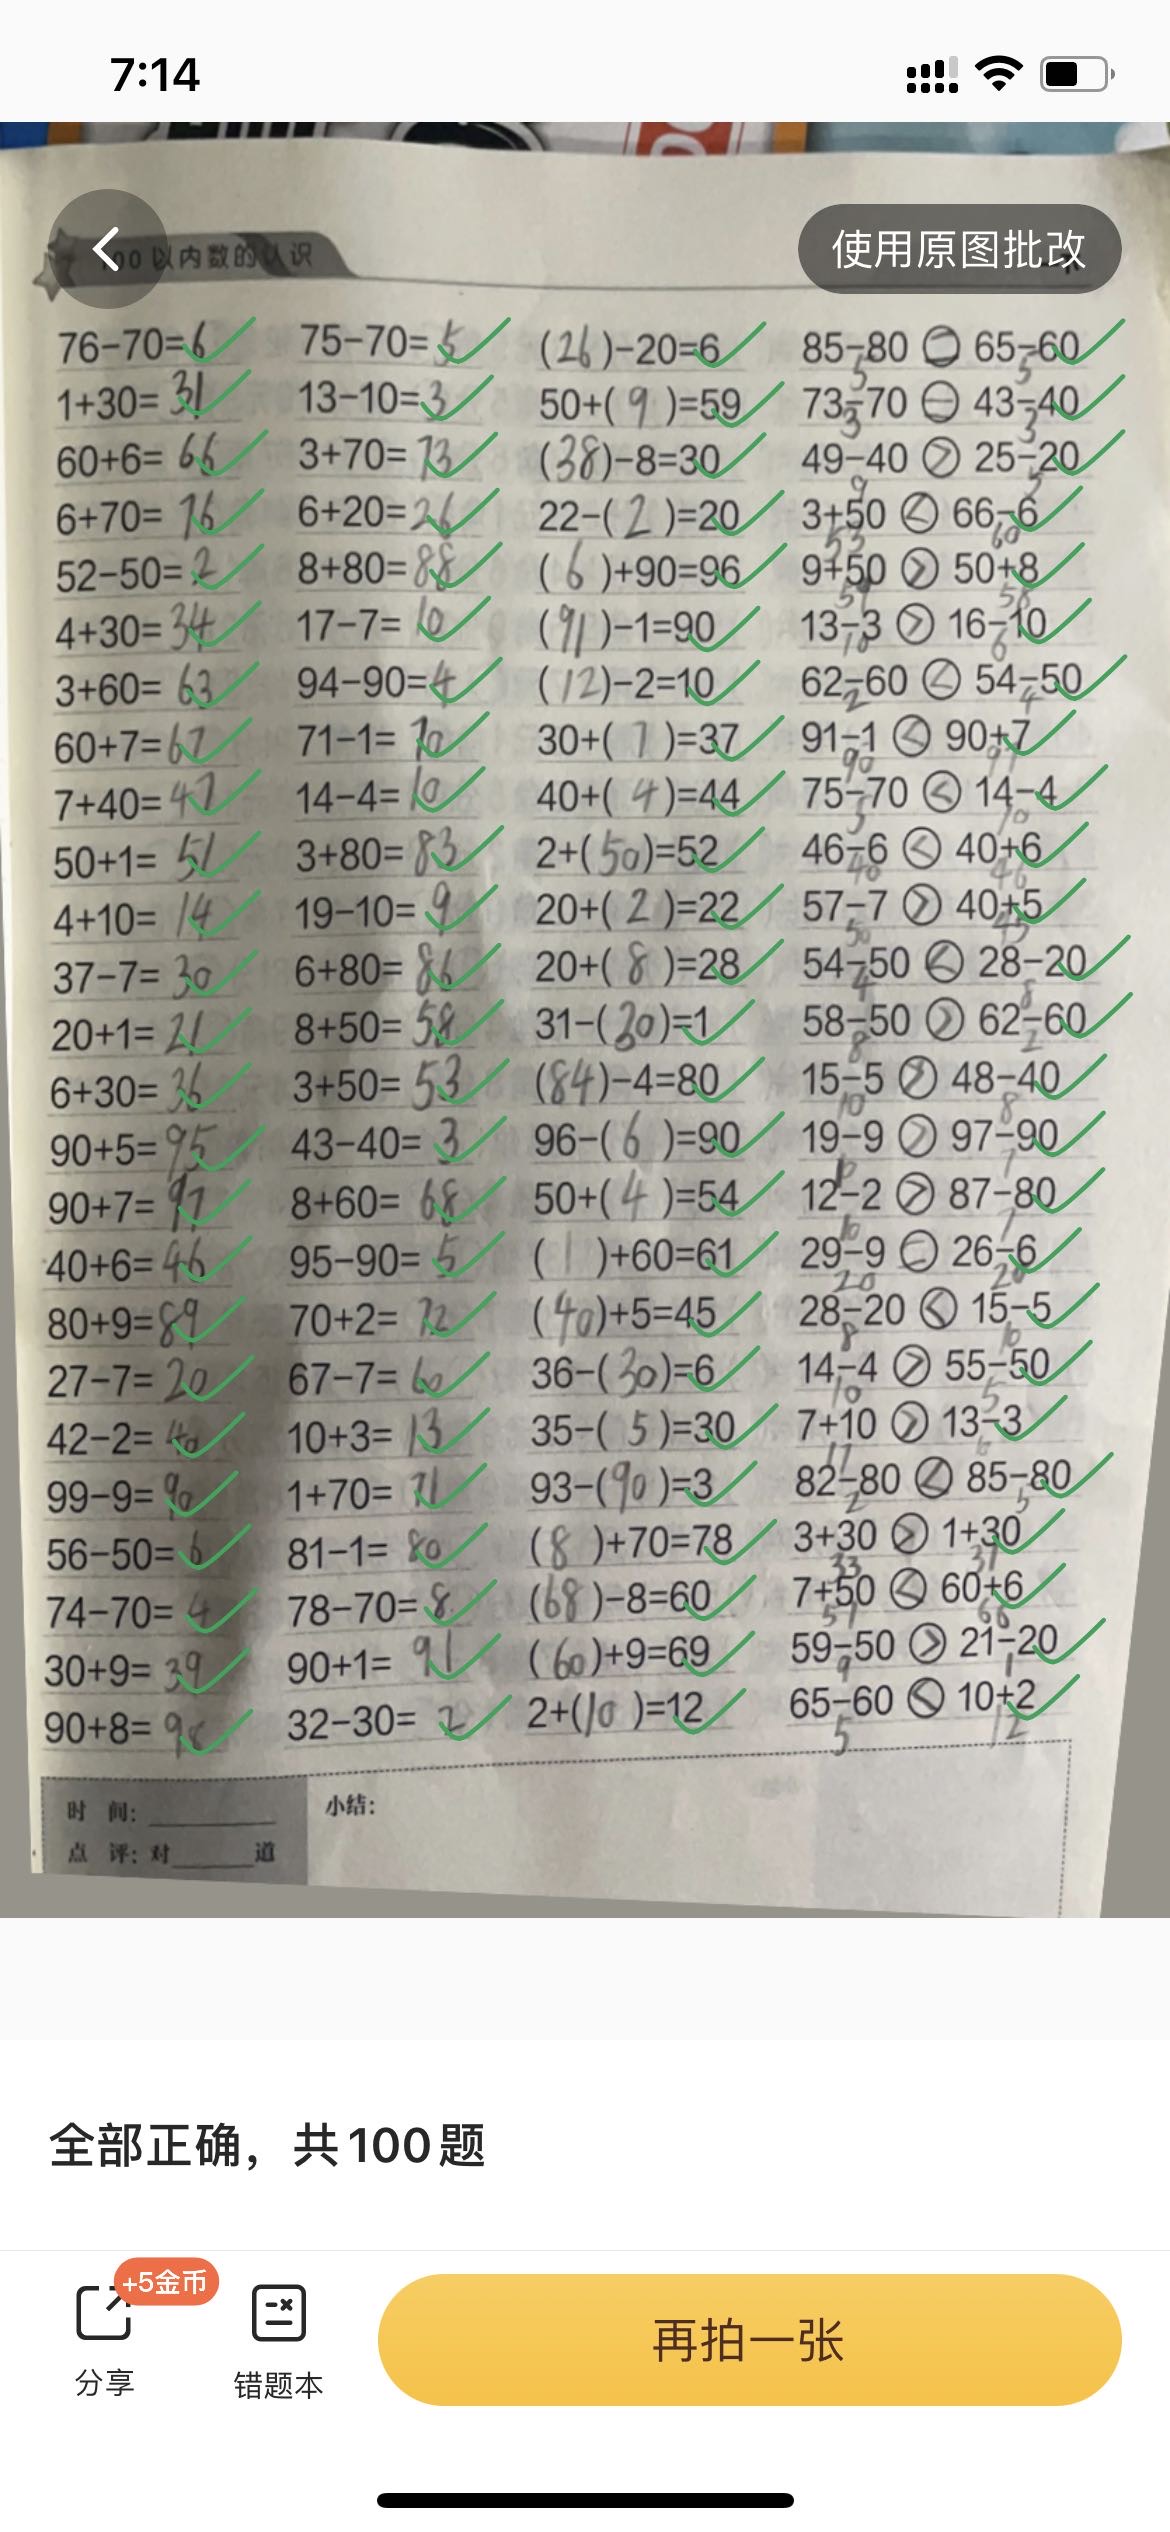 7:14
100 以内数的认识
使用原图批改
76-70=6 75-70=5 (26)-20=6 85-80 = 65-60
5 5
1+30=31 13-10=3 50+(9)=59 73-70 = 43-40
3 3
60+6=66 3+70=73 (38)-8=30 49-40 > 25-20
9 5
6+70=76 6+20=26 22-(2)=20 3+50 < 66-6
53 60
52-50=2 8+80=88 (6)+90=96 9+50 > 50+8
59 58
4+30=34 17-7=10 (91)-1=90 13-3 > 16-10
10 6
3+60=63 94-90=4 (12)-2=10 62-60 < 54-50
2 4
60+7=67 71-1=70 30+(7)=37 91-1 < 90+7
90 97
7+40=47 14-4=10 40+(4)=44 75-70 < 14-4
5 10
50+1=51 3+80=83 2+(50)=52 46-6 < 40+6
40 46
4+10=14 19-10=9 20+(2)=22 57-7 > 40+5
50 45
37-7=30 6+80=86 20+(8)=28 54-50 < 28-20
4 8
20+1=21 8+50=58 31-(30)=1 58-50 > 62-60
8 2
6+30=36 3+50=53 (84)-4=80 15-5 > 48-40
10 8
90+5=95 43-40=3 96-(6)=90 19-9 > 97-90
10 7
90+7=97 8+60=68 50+(4)=54 12-2 > 87-80
10 7
40+6=46 95-90=5 (1)+60=61 29-9 = 26-6
20 20
80+9=89 70+2=72 (40)+5=45 28-20 < 15-5
8 10
27-7=20 67-7=60 36-(30)=6 14-4 > 55-50
10 5
42-2=40 10+3=13 35-(5)=30 7+10 > 13-3
17 10
99-9=90 1+70=71 93-(90)=3 82-80 < 85-80
2 5
56-50=6 81-1=80 (8)+70=78 3+30 > 1+30
33 31
74-70=4 78-70=8 (68)-8=60 7+50 < 60+6
57 66
30+9=39 90+1=91 (60)+9=69 59-50 > 21-20
9 1
90+8=98 32-30=2 2+(10)=12 65-60 < 10+2
5 12
时 间: 小结:
点 评: 对 道
全部正确，共100题
+5金币
分享 错题本 再拍一张